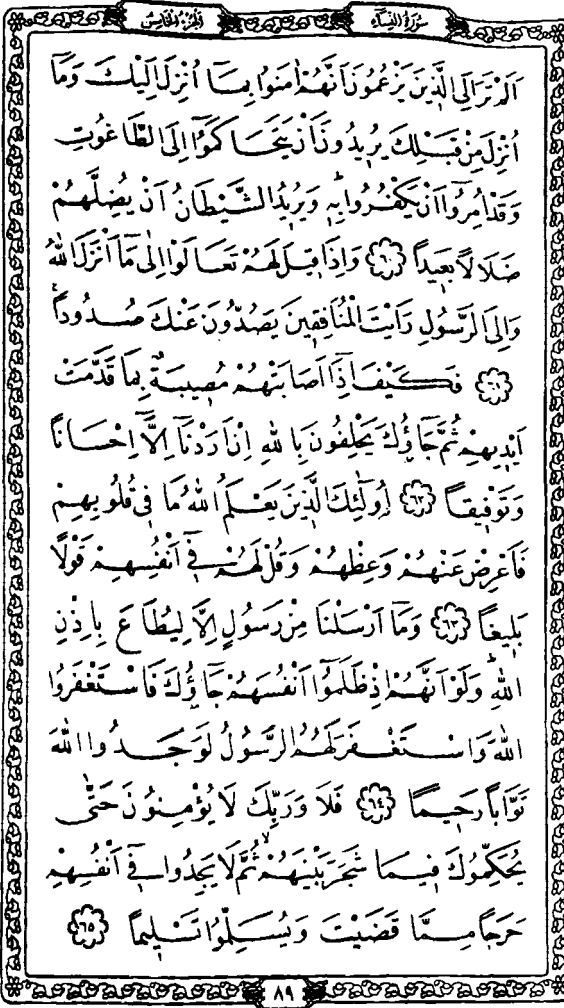 سُورَةُ النِّسَاءِ
اَلْجُزْءُ الْخَامِسُ
اَلَمْ تَرَ اِلَى الَّذ۪ينَ يَزْعُمُونَ اَنَّهُمْ اٰمَنُوا بِمَٓا اُنْزِلَ اِلَيْكَ وَمَٓا
اُنْزِلَ مِنْ قَبْلِكَ يُر۪يدُونَ اَنْ يَتَحَاكَمُٓوا اِلَى الطَّاغُوتِ
وَقَدْ اُمِرُٓوا اَنْ يَكْفُرُوا بِه۪ وَيُر۪يدُ الشَّيْطَانُ اَنْ يُضِلَّهُمْ
ضَلَالًا بَع۪يداً ﴿٦٠﴾ وَاِذَا ق۪يلَ لَهُمْ تَعَالَوْا اِلٰى مَٓا اَنْزَلَ اللّٰهُ
وَاِلَى الرَّسُولِ رَاَيْتَ الْمُنَافِق۪ينَ يَصُدُّونَ عَنْكَ صُدُوداًۚ
﴿٦١﴾ فَكَيْفَ اِذَٓا اَصَابَتْهُمْ مُص۪يبَةٌ بِمَا قَدَّمَتْ
اَيْد۪يهِمْ ثُمَّ جَٓاؤُ۫كَ يَحْلِفُونَ بِاللّٰهِ اِنْ اَرَدْنَٓا اِلَّٓا اِحْسَاناً
وَتَوْف۪يقاً ﴿٦٢﴾ اُو۬لٰٓئِكَ الَّذ۪ينَ يَعْلَمُ اللّٰهُ مَا ف۪ي قُلُوبِهِمْ
فَاَعْرِضْ عَنْهُمْ وَعِظْهُمْ وَقُلْ لَهُمْ ف۪ٓي اَنْفُسِهِمْ قَوْلًا
بَل۪يغاً ﴿٦٣﴾ وَمَٓا اَرْسَلْنَا مِنْ رَسُولٍ اِلَّا لِيُطَاعَ بِاِذْنِ
اللّٰهِۜ وَلَوْ اَنَّهُمْ اِذْ ظَلَمُٓوا اَنْفُسَهُمْ جَٓاؤُ۫كَ فَاسْتَغْفَرُوا
اللّٰهَ وَاسْتَغْفَرَ لَهُمُ الرَّسُولُ لَوَجَدُوا اللّٰهَ
تَوَّاباً رَح۪يماً ﴿٦٤﴾ فَلَا وَرَبِّكَ لَا يُؤْمِنُونَ حَتّٰى
يُحَكِّمُوكَ ف۪يمَا شَجَرَ بَيْنَهُمْ ثُمَّ لَا يَجِدُوا ف۪ٓي اَنْفُسِهِمْ
حَرَجاً مِمَّا قَضَيْتَ وَيُسَلِّمُوا تَسْل۪يماً ﴿٦٥﴾
٨٩